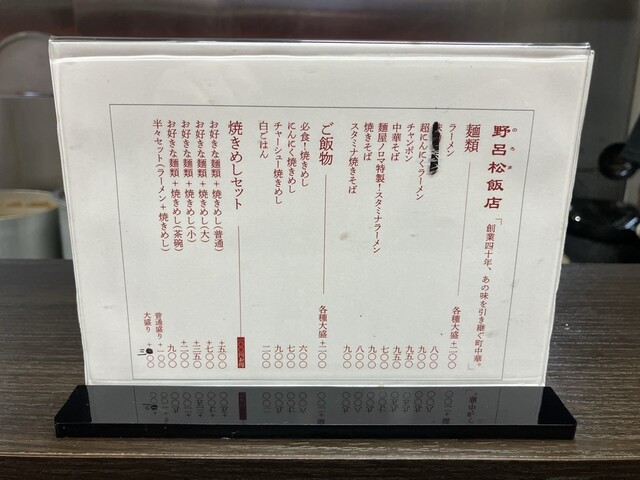 野呂松飯店
のろま
「創業四十年、あの味を引き継ぐ町中華。」
麺類 各種大盛+一〇〇
ラーメン 八〇〇
九〇〇
超にんにくラーメン 九五〇
チャンポン 九五〇
中華そば 七〇〇
麺屋ノロマ特製!スタミナラーメン 九〇〇
焼きそば 八〇〇
スタミナ焼きそば 九〇〇
ご飯物 各種大盛+一〇〇
必食!焼きめし 六〇〇
にんにく焼きめし 七〇〇
チャーシュー焼きめし 九〇〇
白ごはん 二〇〇
焼きめしセット
お好きな麺類+焼きめし(普通) +五〇〇
お好きな麺類+焼きめし(大) +七〇〇
お好きな麺類+焼きめし(小) +三五〇
お好きな麺類+焼きめし(茶碗) +二〇〇
半々セット(ラーメン+焼きめし) 九〇〇
普通盛り+一〇〇
大盛り